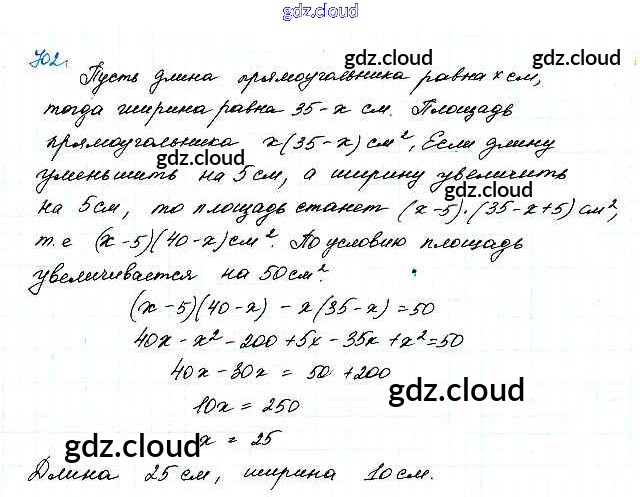 gdz.cloud
702.
gdz.cloud gdz.cloud
Пусть длина прямоугольника равна x см,
тогда ширина равна 35-x см. Площадь
прямоугольника x(35-x) см², Если длину
gdz.cloud
уменьшить на 5 см, а ширину увеличить
gdz.cloud
на 5 см, то площадь станет (x-5)·(35-x+5) см²,
т.е (x-5)(40-x) см². По условию площадь
увеличивается на 50 см².
(x-5)(40-x) - x(35-x) = 50
40x - x² - 200 + 5x - 35x + x² = 50
40x - 30x = 50 + 200
gdz.cloud
10x = 250
gdz.cloud
x = 25
Длина 25 см, ширина 10 см.